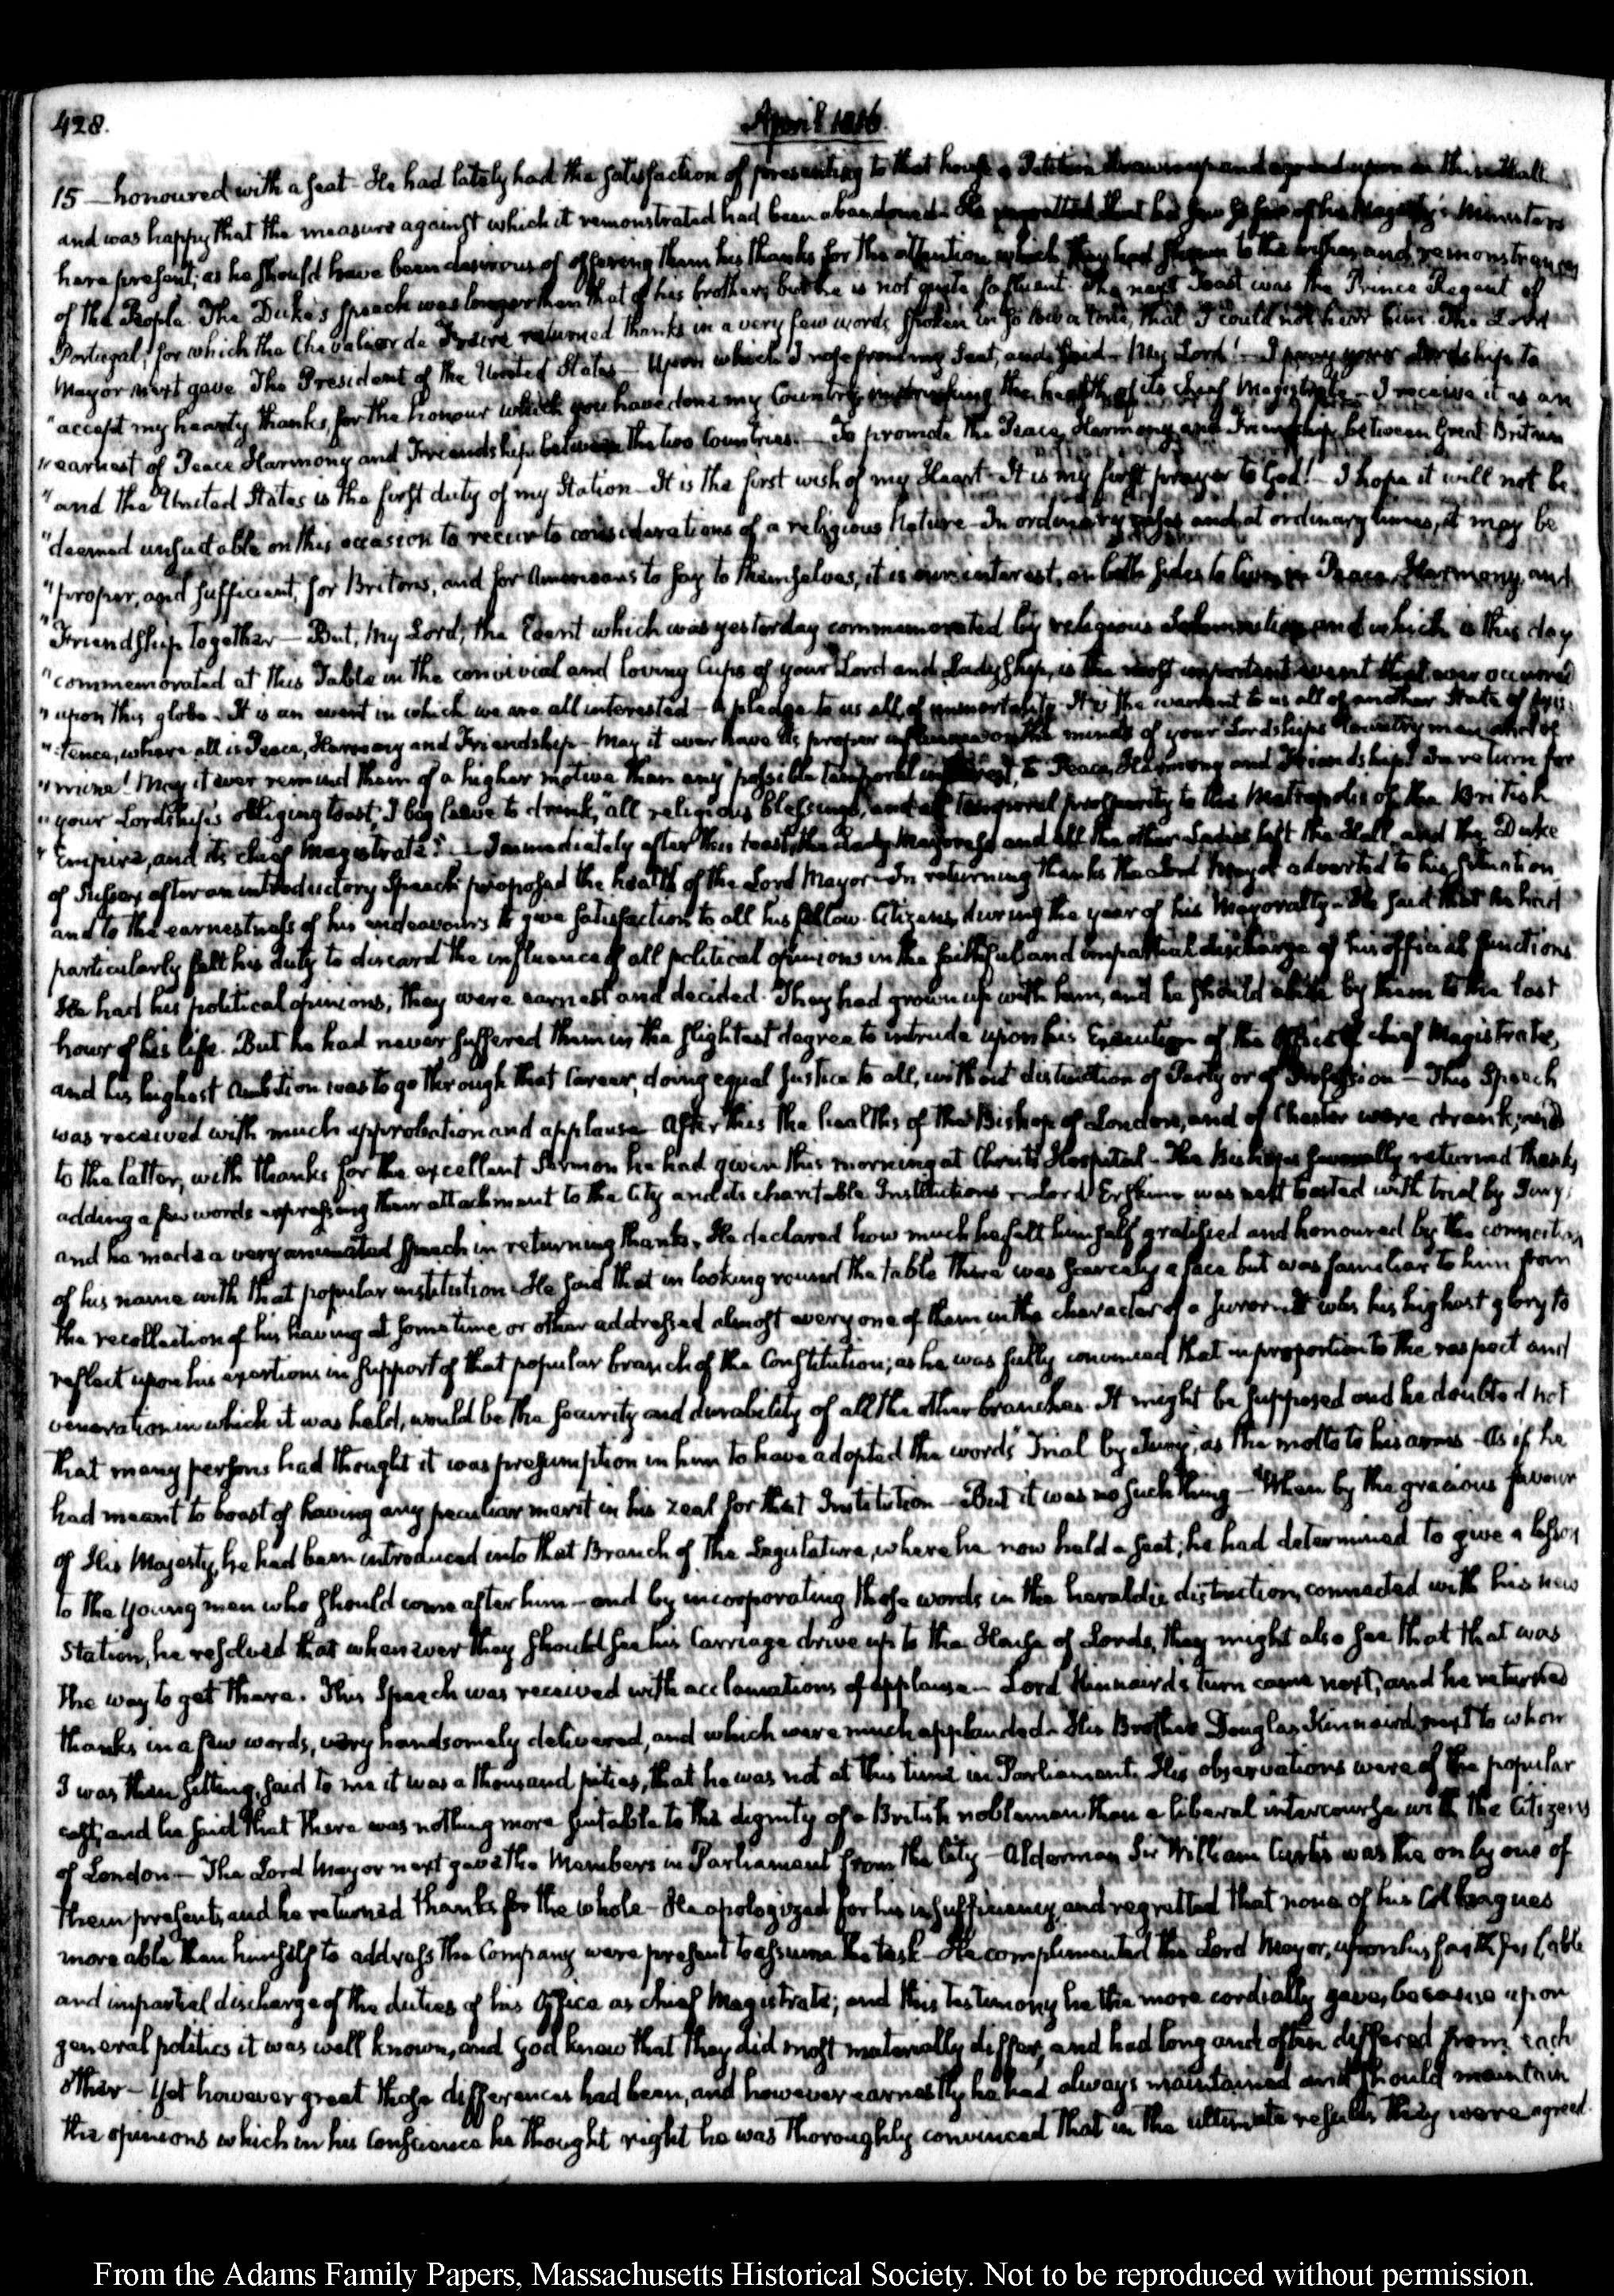 428.
April 1816.
15 — honoured with a seat - He had lately had the satisfaction of presenting to that house a Petition drawn up and agreed upon in this Hall
and was happy that the measure against which it remonstrated had been abandoned. He regretted that he saw so few of his Majesty's Ministers
here present; as he should have been desirous of offering them his thanks for the attention which they had shewn to the wishes and remonstrances
of the People. The Duke's speech was longer than that of his brother, but he is not quite so fluent. The next Toast was the Prince Regent of
Portugal; for which the Chevalier de Freire returned thanks in a very few words, spoken in so low a tone, that I could not hear him. The Lord
Mayor next gave The President of the United States — Upon which I rose from my seat, and said — My Lord! — I pray your Lordship to
"accept my hearty thanks, for the honour which you have done my Country, in drinking the health of its Chief Magistrate — I receive it as an
"earnest of Peace Harmony and Friendship between the two Countries. — To promote the Peace, Harmony and Friendship between Great Britain
"and the United States is the first duty of my Station — It is the first wish of my Heart - It is my first prayer to God! — I hope it will not be
"deemed unsuitable on this occasion to recur to considerations of a religious Nature - In ordinary cases and at ordinary times, it may be
"proper, and sufficient, for Britons, and for Americans to say to themselves, it is our interest, on both sides to live in Peace, Harmony, and
"Friendship together — But, My Lord, the Event which was yesterday commemorated by religious Solemnities, and which is this day
"commemorated at this Table in the convivial and loving Cups of your Lord and Ladyship, is the most important event that ever occurred
"upon this globe. It is an event in which we are all interested — A pledge to us all, of immortality. It is the warrant to us all of another State of exis-
"tence, where all is Peace, Harmony and Friendship - May it ever have its proper influence on the minds of your Lordship's Countrymen and of
"mine! May it ever remind them of a higher motive than any possible temporal interest, to Peace, Harmony and Friendship! In return for
"your Lordship's obliging toast, I beg leave to drink, "all religious blessings, and all temporal prosperity to this Metropolis of the British
"Empire, and its chief Magistrate." — Immediately after this toast, the Lady Mayoress and all the other Ladies left the Hall, and the Duke
of Sussex after an introductory Speech proposed the health of the Lord Mayor - In returning thanks the Lord Mayor adverted to his situation
and to the earnestness of his endeavours to give satisfaction to all his fellow-Citizens, during the year of his Mayoralty - He said that he had
particularly felt his duty to discard the influence of all political opinions in the faithful and impartial discharge of his official functions.
He had his political opinions, they were earnest and decided. They had grown up with him, and he should abide by them to the last
hour of his life. But he had never suffered them in the slightest degree to intrude upon his Execution of the Office of chief Magistrate,
and his highest Ambition was to go through that Career, doing equal Justice to all, without distinction of Party or of Profession — This Speech
was received with much approbation and applause - After this the healths of the Bishop of London, and of Chester were drank; and
to the latter, with thanks for the excellent Sermon he had given this morning at Christ's Hospital - The Bishops severally returned thanks,
adding a few words expressing their attachment to the City and its charitable Institutions. Lord Erskine was next toasted with trial by Jury;
and he made a very animated speech in returning thanks. He declared how much he felt himself gratified and honoured by the connection
of his name with that popular institution. He said that in looking round the table there was scarcely a face but was familiar to him from
the recollection of his having at some time or other addressed almost every one of them in the character of a Juror. It was his highest glory to
reflect upon his exertions in support of that popular branch of the Constitution; as he was fully convinced that in proportion to the respect and
veneration in which it was held, would be the security and durability of all the other branches. It might be supposed and he doubted not
that many persons had thought it was presumption in him to have adopted the words "Trial by Jury," as the motto to his arms - As if he
had meant to boast of having any peculiar merit in his zeal for that Institution — But it was no such thing — When by the gracious favour
of His Majesty, he had been introduced into that Branch of the Legislature, where he now held a seat; he had determined to give a lesson
to the young men who should come after him — and by incorporating those words in the heraldic distinction, connected with his new
Station, he resolved that whenever they should see his Carriage drive up to the House of Lords, they might also see that that was
the way to get there. This Speech was received with acclamations of applause — Lord Kinnaird's turn came next, and he returned
thanks in a few words, very handsomely delivered, and which were much applauded. His Brother Douglas Kinnaird, next to whom
I was then sitting, said to me it was a thousand pities, that he was not at this time in Parliament. His observations were of the popular
cast, and he said that there was nothing more suitable to the dignity of a British nobleman than a liberal intercourse with the Citizens
of London — The Lord Mayor next gave the Members in Parliament from the City — Alderman Sir William Curtis was the only one of
them present, and he returned thanks for the whole - He apologized for his insufficiency, and regretted that none of his Colleagues
more able than himself to address the Company were present to assume the task - He complimented the Lord Mayor, upon his faithful, able
and impartial discharge of the duties of his Office as chief Magistrate; and this testimony he the more cordially gave, because upon
general politics it was well known, and God knew that they did most materially differ, and had long and often differed from each
other — Yet however great those differences had been, and however earnestly he had always maintained and should maintain
the opinions which in his Conscience he thought right he was thoroughly convinced that in the ultimate results they were agreed.
From the Adams Family Papers, Massachusetts Historical Society. Not to be reproduced without permission.